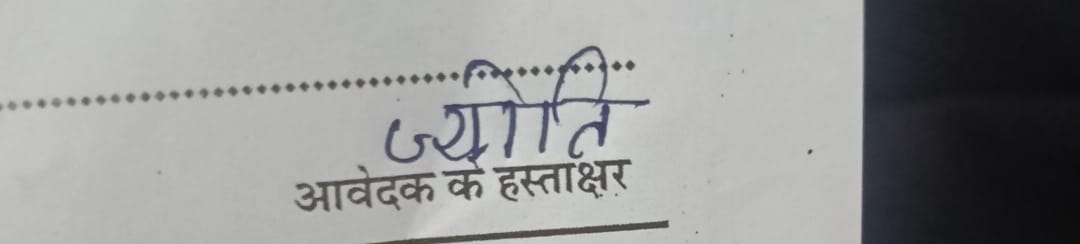 ज्योति
आवेदक के हस्ताक्षर